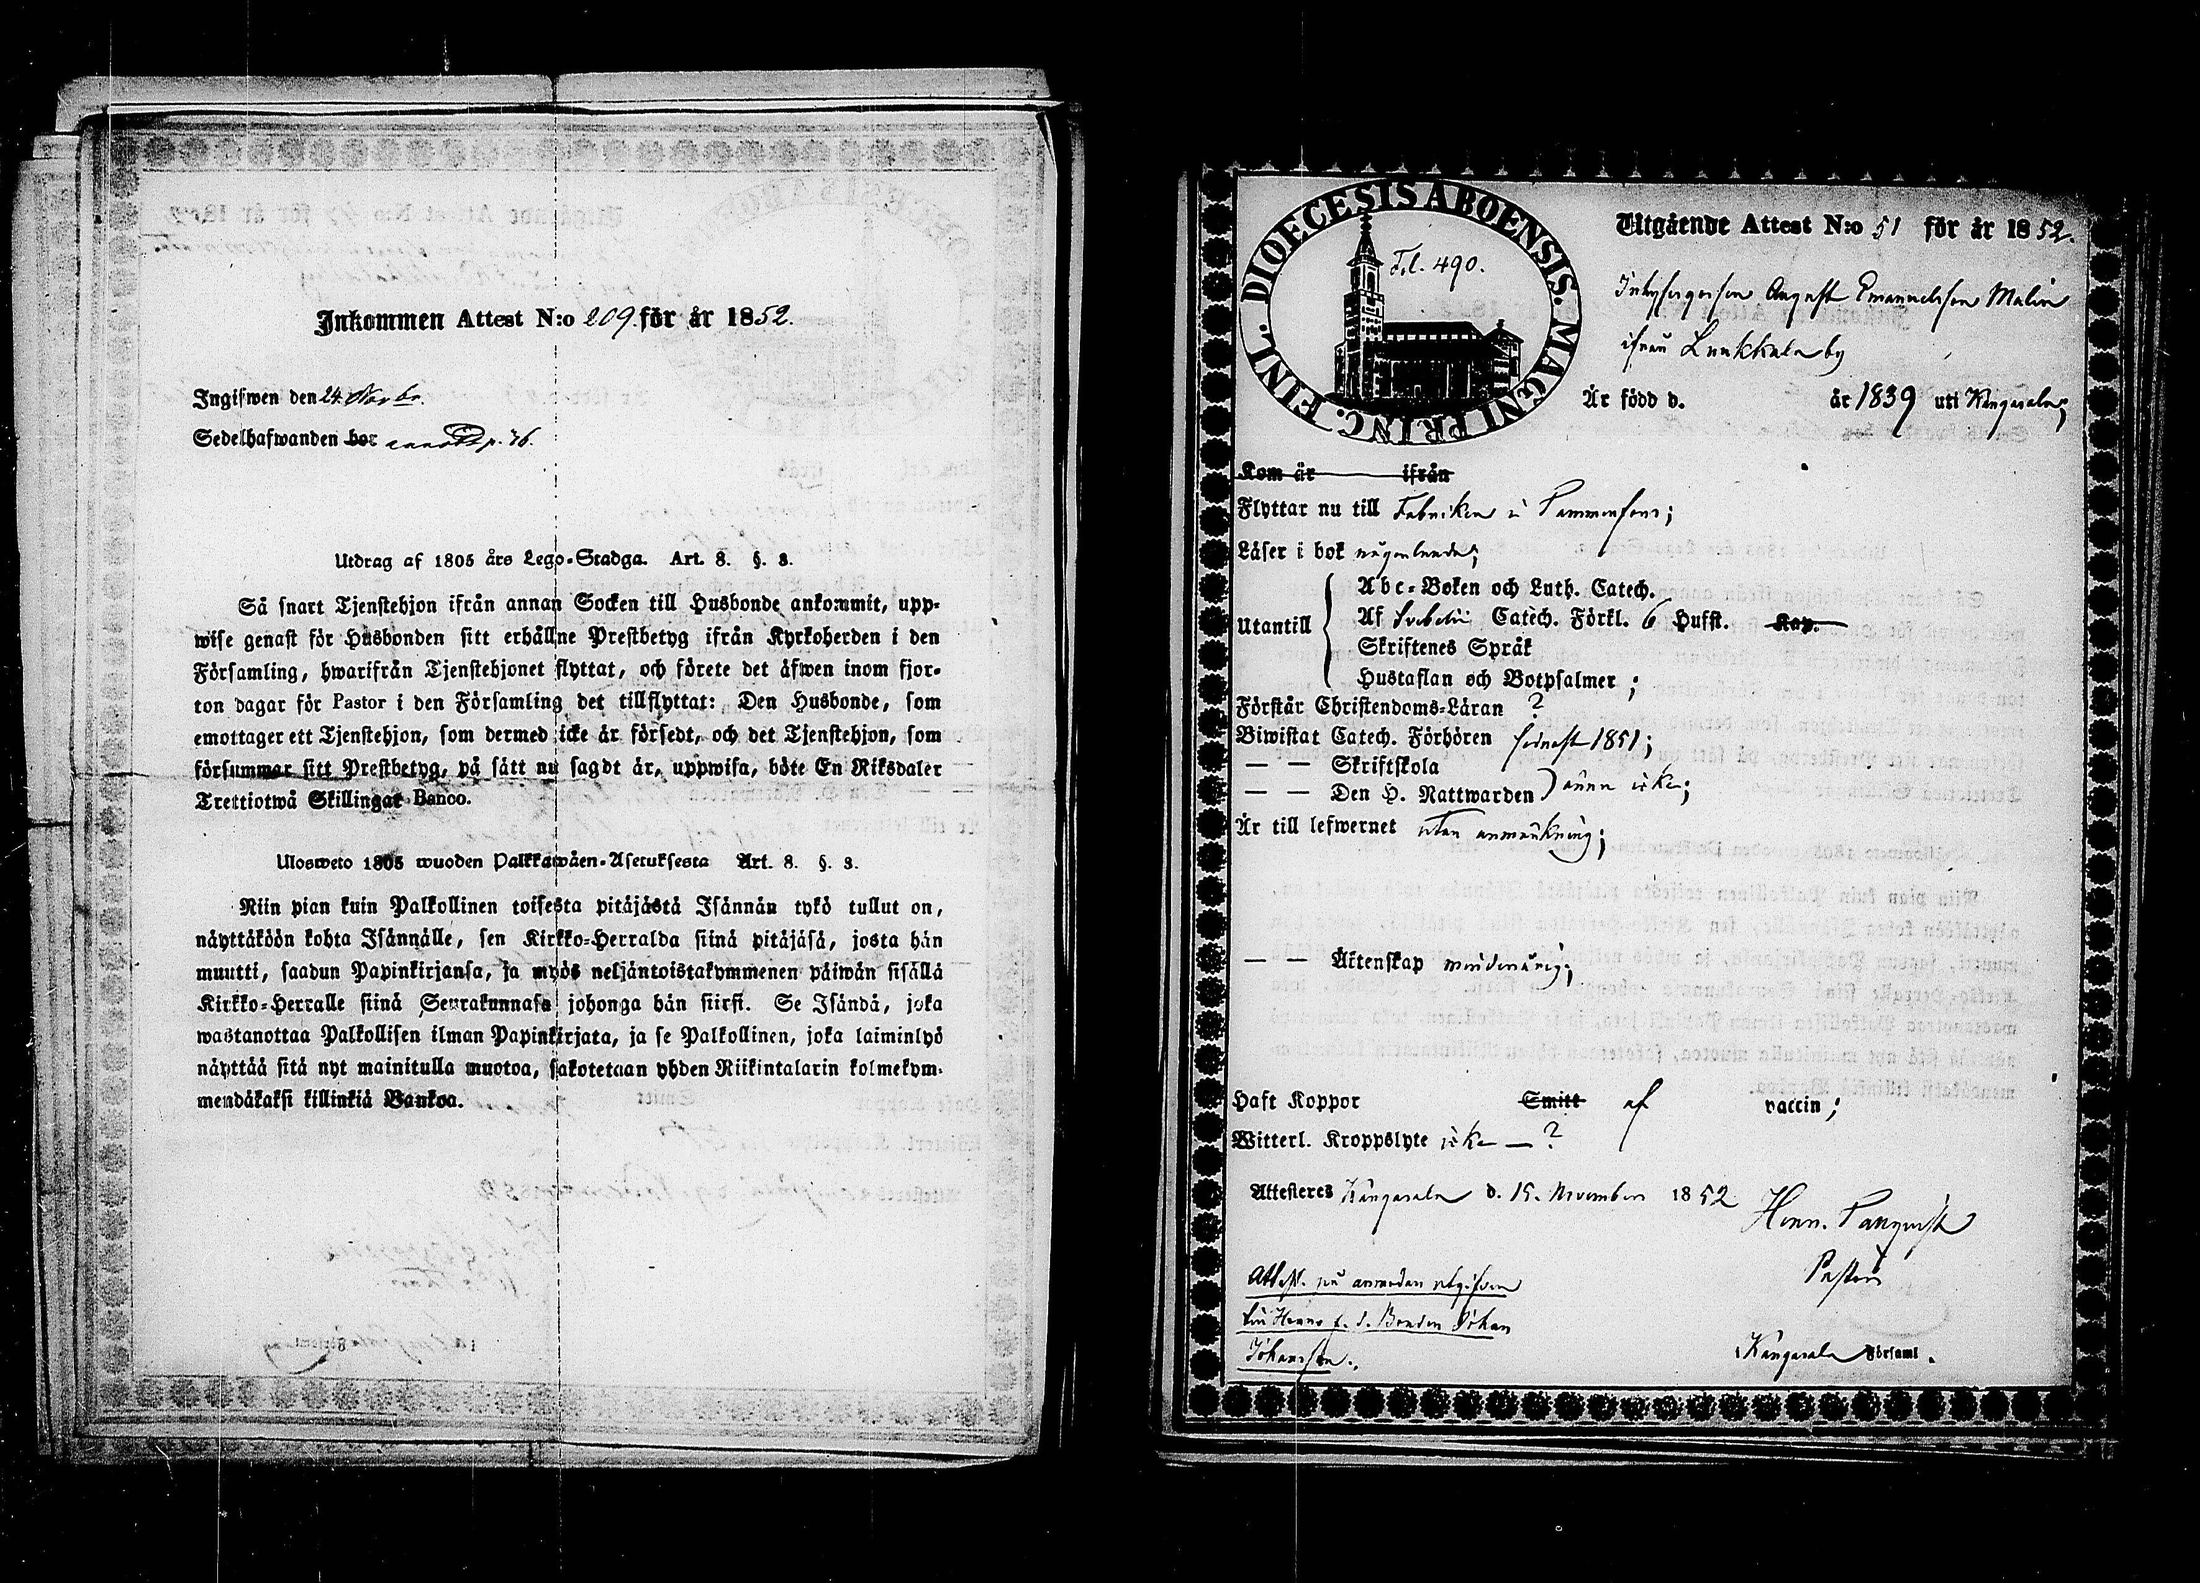 Inkommen Attest N:o 209. för år 1852.
Ingifwen den 24. Novbr.
Sedelhafwanden bor p. 76.
Utdrag af 1805 års Lego-Stadga. Art. 8. §. 3.
Så snart Tjenstehjon ifrån annan Socken till Husbonde ankommit, upp-
wise genast för Husbonden sitt erhållne Prestbetyg ifrån Kyrkoherden i den
Församling, hwarifrån Tjenstehjonet flyttat, och förete det äfwen inom fjor-
ton dagar för Pastor i den Församling det tillflyttat: Den Husbonde, som
emottager ett Tjenstehjon, som dermed icke är försedt, och det Tjenstehjon, som
försummar sitt Prestbetyg, på sätt nu sagdt är, uppwisa, böte En Riksdaler
Trettiotwå Skillingar Banco.
Ulosweto 1805 wuoden Palkkawäen-Asetuksesta Art. 8. §. 3.
Niin pian kuin Palkollinen toisesta pitäjästä Isännän tykö tullut on,
näyttäköön kohta Isännälle, sen Kirkko-Herralda siinä pitäjäsä, josta hän
muutti, saadun Papinkirjansa, ja myös neljäntoistakymmenen päiwän sisällä
Kirkko-Herralle siinä Seurakunnasa johonga hän siirsi. Se Isändä, joka
wastanottaa Palkollisen ilman Papinkirjata, ja se Palkollinen, joka laiminlyö
näyttää sitä nyt mainitulla muotoa, sakotetaan yhden Riikintalarin kolmekym-
mendäkaksi killinkiä Bankoa.
DIOECESIS ABOENSIS. MAGNI PRINC. FINL.
Fol. 490.
Utgående Attest N:o 51 för år 1852.
August Emanuelsson Malin
ifrån Liukkala by
Är född d. år 1839 uti Kangasala;
Kom år ifrån
Flyttar nu till Fabriken i Tammerfors;
Läser i bok någorlunda;
Utantill
Abc-Boken och Luth. Catech.
Af Svebelii Catech. Förkl. 6 Hufst. Kap.
Skriftenes Språk
Hustaflan och Botpsalmer;
Förstår Christendoms-Läran ?
Biwistat Catech. Förhören sednast 1851;
— — Skriftskola
— — Den H. Nattwarden ) ännu icke;
Är till lefwernet utan anmärkning;
— — Äktenskap minderårig;
Haft Koppor Smitt af vaccin;
Witterl. Kroppslyte icke — ?
Attesteres Kangasala d. 15. November 1852
Henr. Palmqvist
Pastor
i Kangasala Församl.
Attest. på anmodan utgifven
till Henne f. d. Bonden Johan
Johansson.